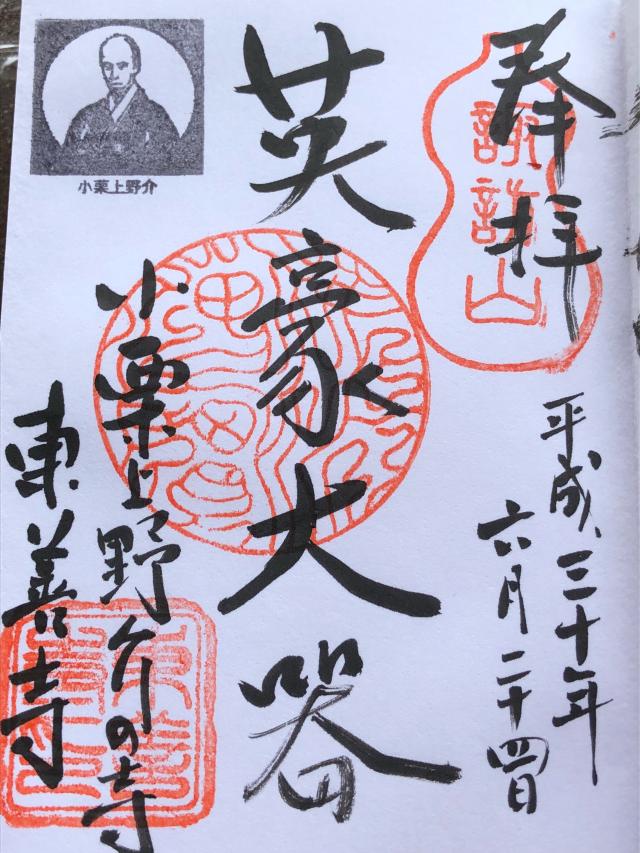 奉拝
諏訪山
平成三十年
六月二十四日
英豪大器
小栗上野介
小栗上野介の寺
東善寺